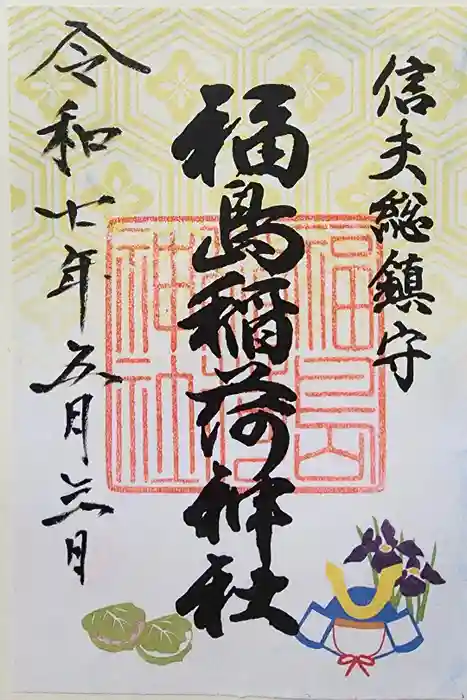 信夫総鎮守
福島稲荷神社
令和七年五月六日
福島稲荷神社